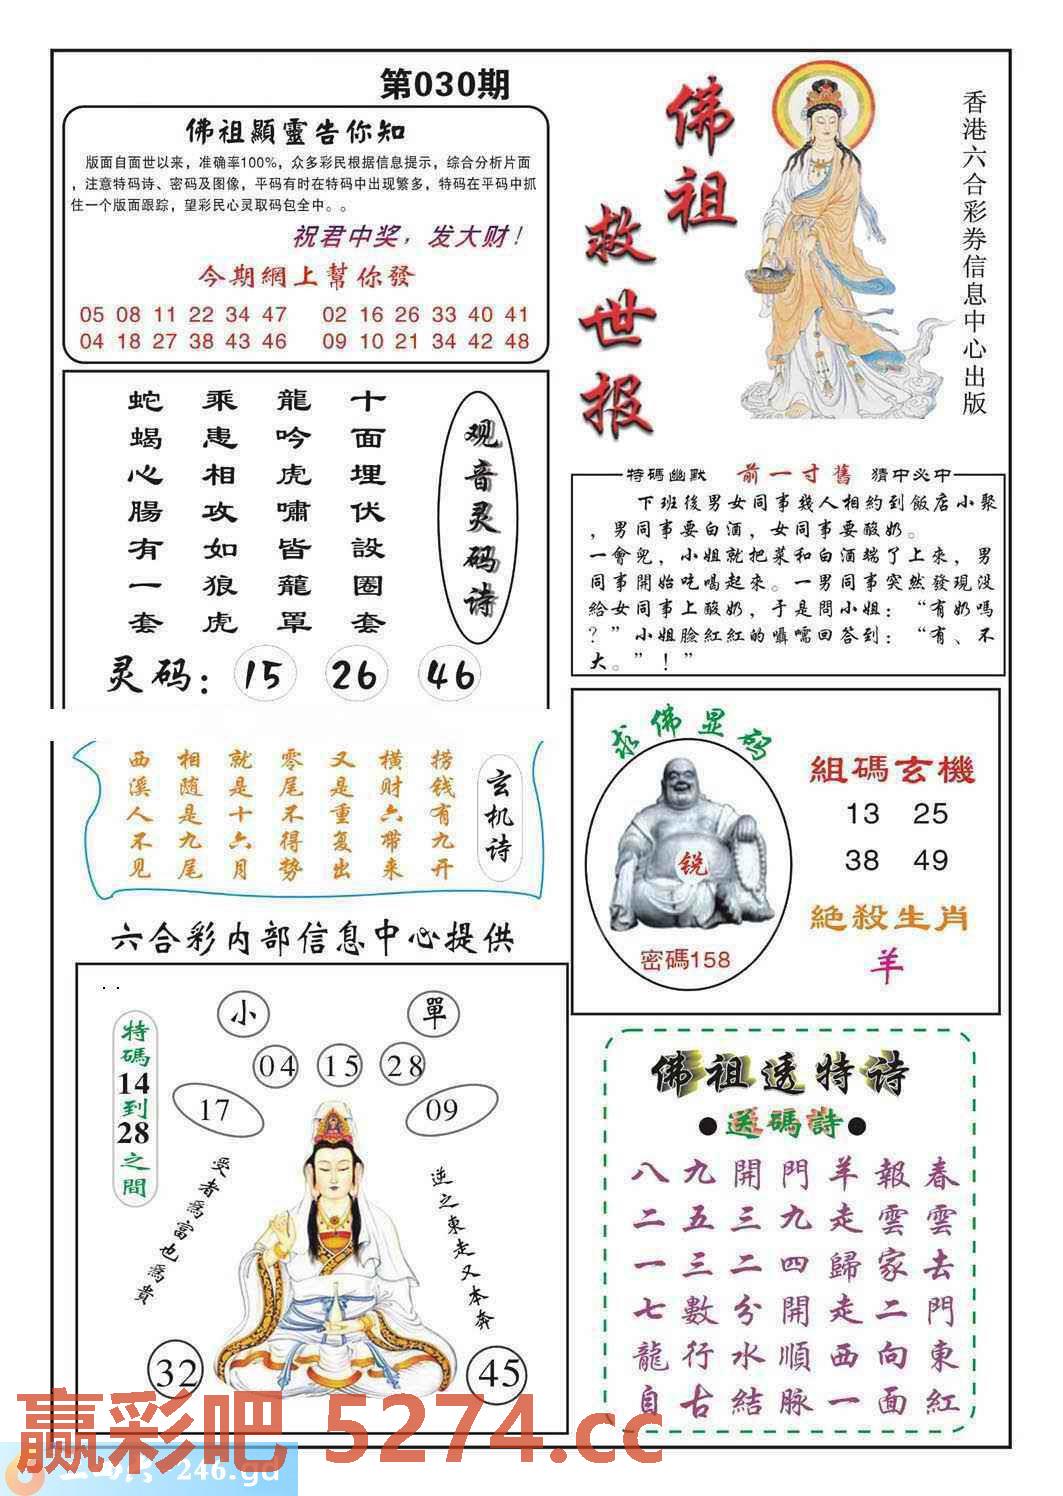 第030期
佛祖顯靈告你知
版面自面世以来，准确率100%，众多彩民根据信息提示，综合分析片面
，注意特码诗、密码及图像，平码有时在特码中出现繁多，特码在平码中抓
住一个版面跟踪，望彩民心灵取码包全中。。
祝君中奖，发大财！
今期網上幫你發
05 08 11 22 34 47 02 16 26 33 40 41
04 18 27 38 43 46 09 10 21 34 42 48
佛祖
救世报
香港六合彩券信息中心出版
观音灵码诗
十面埋伏設圈套
龍吟虎嘯皆龍罩
乘患相攻如狼虎
蛇蝎心腸有一套
灵码：15 26 46
特碼幽默 前一寸舊 猜中必中
下班後男女同事幾人相約到飯店小聚
，男同事要白酒，女同事要酸奶。
一會兒，小姐就把菜和白酒端了上來，男
同事開始吃喝起來。一男同事突然發現没
給女同事上酸奶，于是問小姐：“有奶嗎
？”小姐臉紅紅的囁嚅回答到：“有、不
大。”！”
玄机诗
捞钱有九开
横财六带来
又是重复出
零尾不得势
就是十六月
相随是九尾
西溪人不见
求佛显码
锐
密碼158
組碼玄機
13 25
38 49
絕殺生肖
羊
六合彩内部信息中心提供
特碼14到28之間
小
單
04 15 28
17
09
受者爲富也爲貴
逆之東走又本奔
32
45
佛祖透特诗
●送碼詩●
八九開門羊報春
二五三九走雲雲
一三二四歸家去
七數分開走二門
龍行水順西向東
自古結脉一面紅
赢彩吧 5274.cc
246.gd